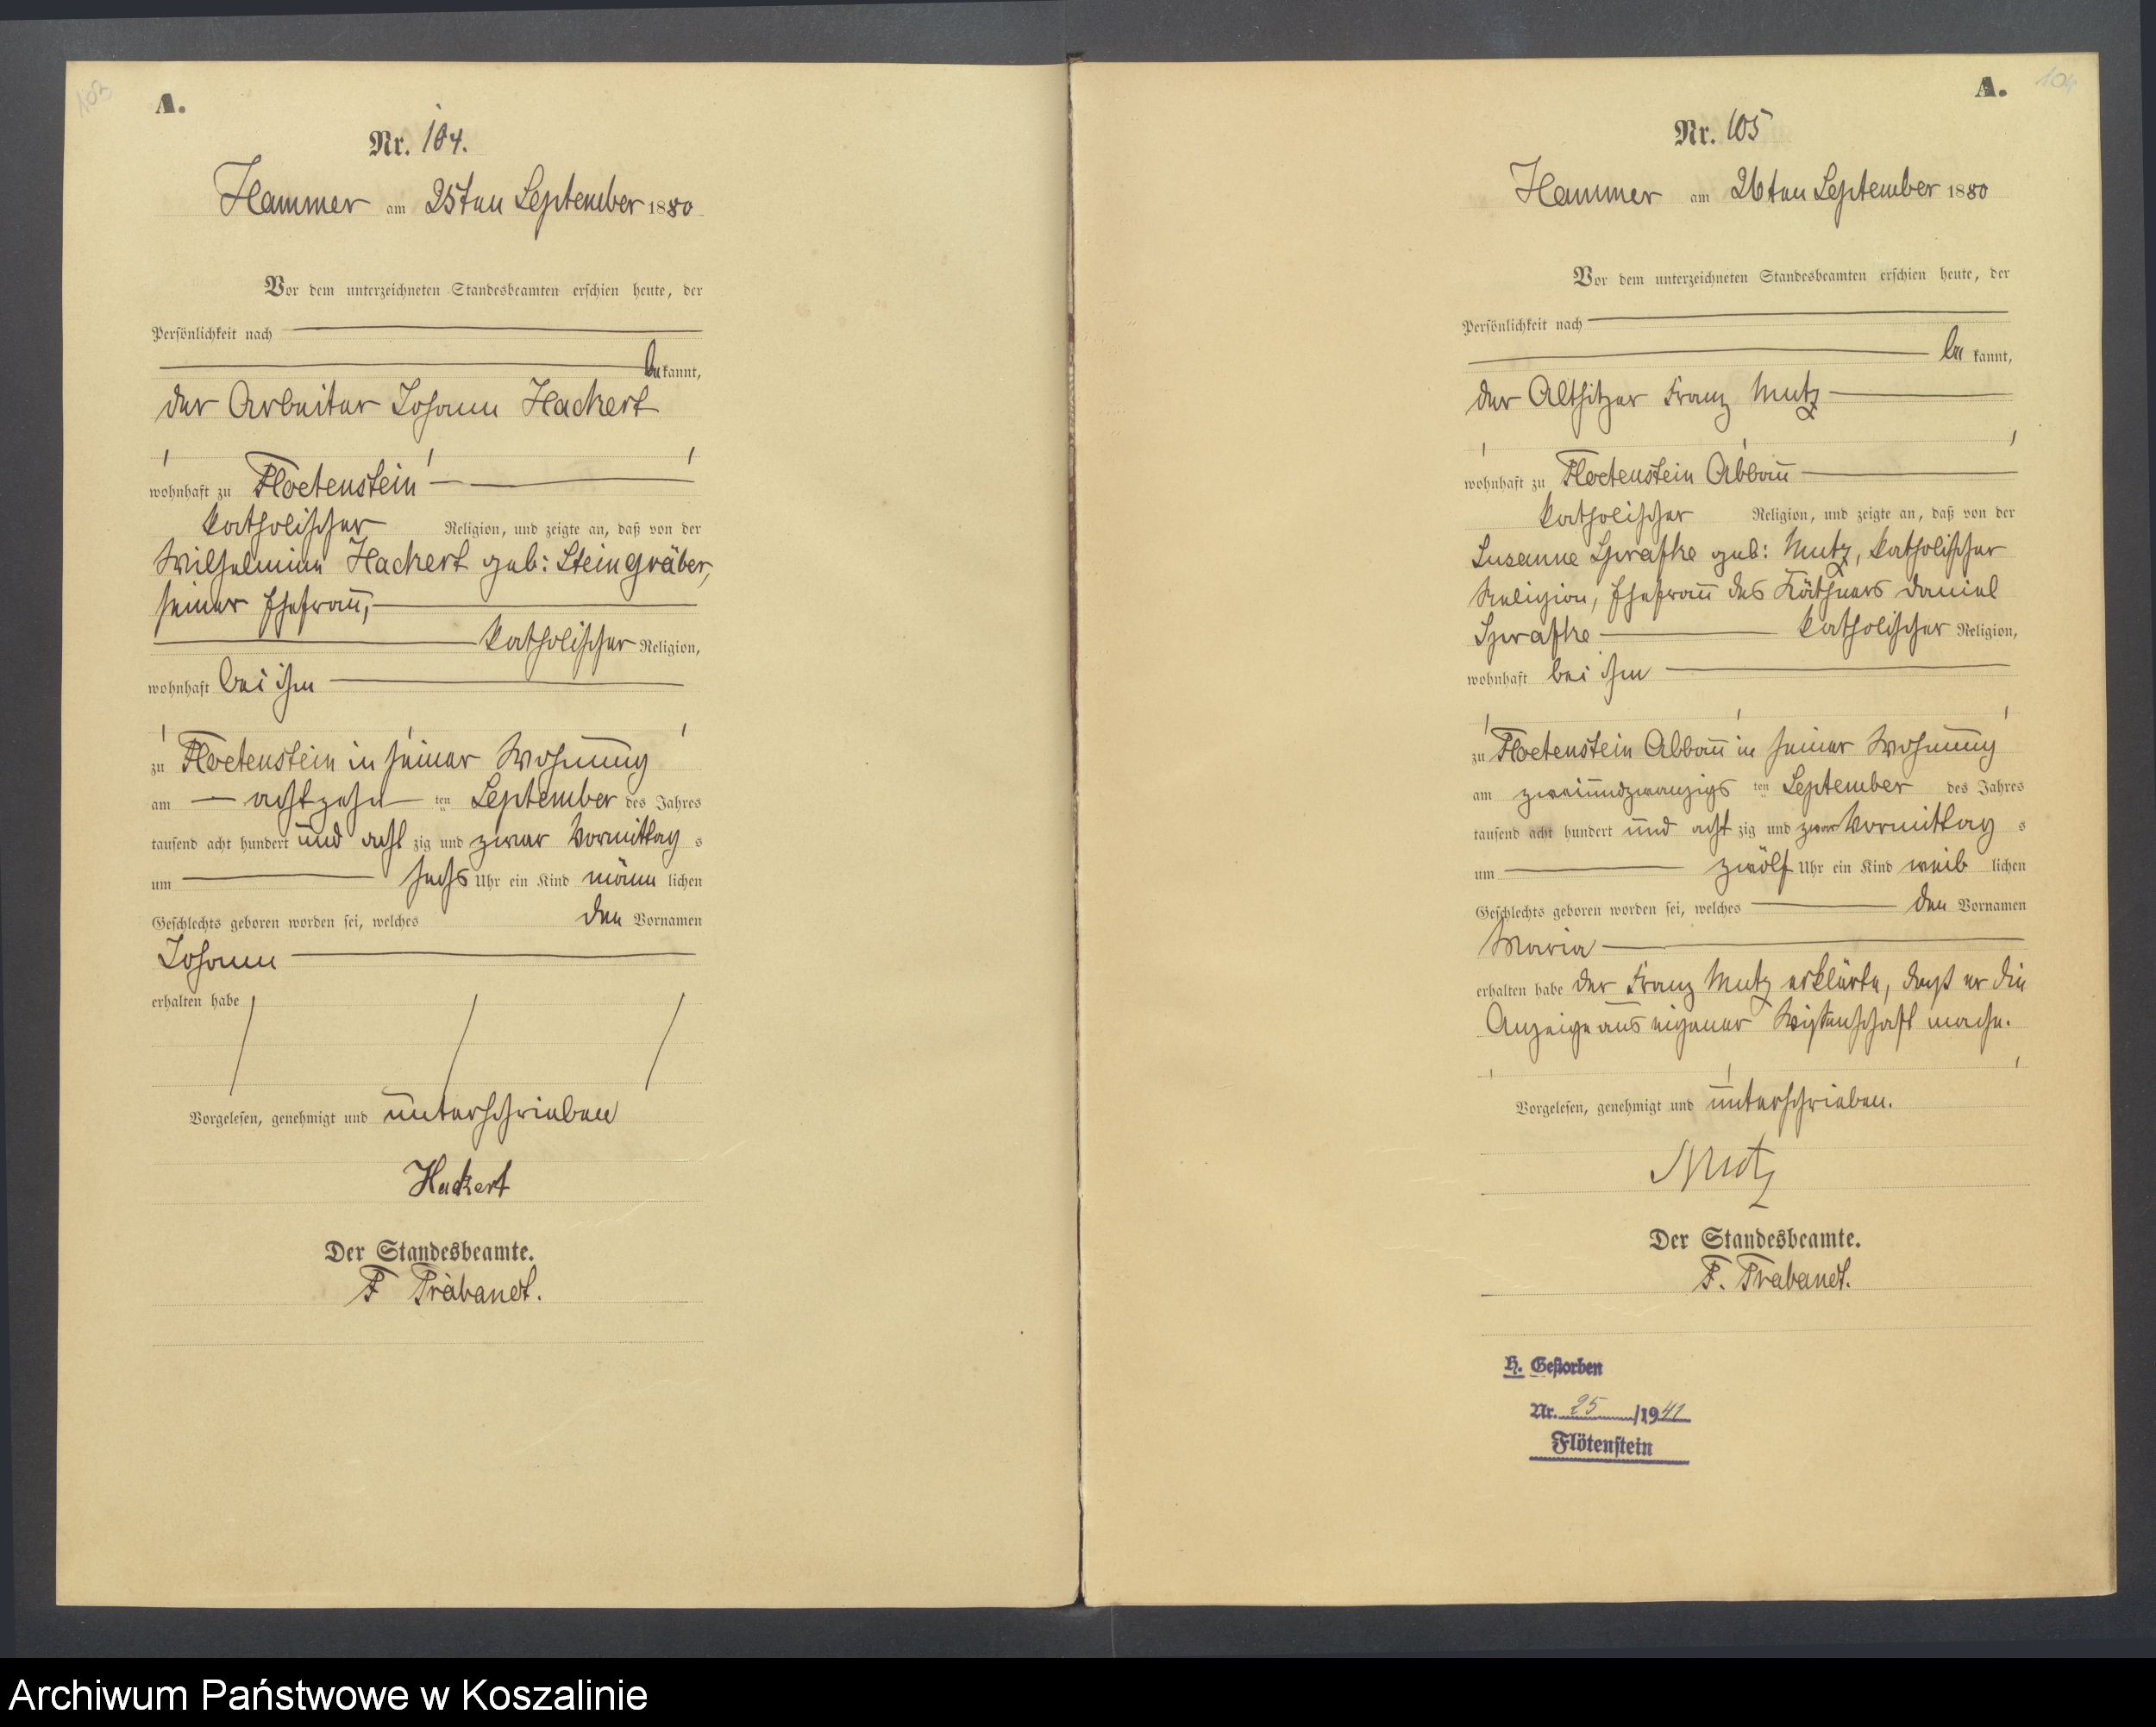 103
A.
Nr. 104.
Hammer am 25ten September 1880
Vor dem unterzeichneten Standesbeamten erschien heute, der
Persönlichkeit nach
be kannt,
der Arbeiter Johann Hackert
wohnhaft zu Floetenstein
katholischer Religion, und zeigte an, daß von der
Wilhelmine Hackert geb: Steingräber,
seiner Ehefrau,
katholischer Religion,
wohnhaft bei ihm
zu Floetenstein in seiner Wohnung
am achtzehn ten September des Jahres
tausend acht hundert und acht zig und zwar Vormittag s
um sechs Uhr ein Kind männ lichen
Geschlechts geboren worden sei, welches den Vornamen
Johann
erhalten habe
Vorgelesen, genehmigt und unterschrieben
Hackert
Der Standesbeamte.
F Trabandt.
104
A.
Nr. 105
Hammer am 26ten September 1880
Vor dem unterzeichneten Standesbeamten erschien heute, der
Persönlichkeit nach
be kannt,
der Altsitzer Franz Mutz
wohnhaft zu Floetenstein Abbau
katholischer Religion, und zeigte an, daß von der
Susanne Sprafke geb: Mutz, katholischer
Religion, Ehefrau des Käthners Daniel
Sprafke katholischer Religion,
wohnhaft bei ihm
zu Floetenstein Abbau in seiner Wohnung
am zweiundzwanzigs ten September des Jahres
tausend acht hundert und acht zig und zwar Vormittag s
um zwölf Uhr ein Kind weib lichen
Geschlechts geboren worden sei, welches den Vornamen
Maria
erhalten habe der Franz Mutz erklärte, dass er die
Anzeige aus eigener Wissenschaft mache.
Vorgelesen, genehmigt und unterschrieben.
Mutz
Der Standesbeamte.
F. Trabandt.
H. Gestorben
Nr. 25/1941
Flötenstein
Archiwum Państwowe w Koszalinie